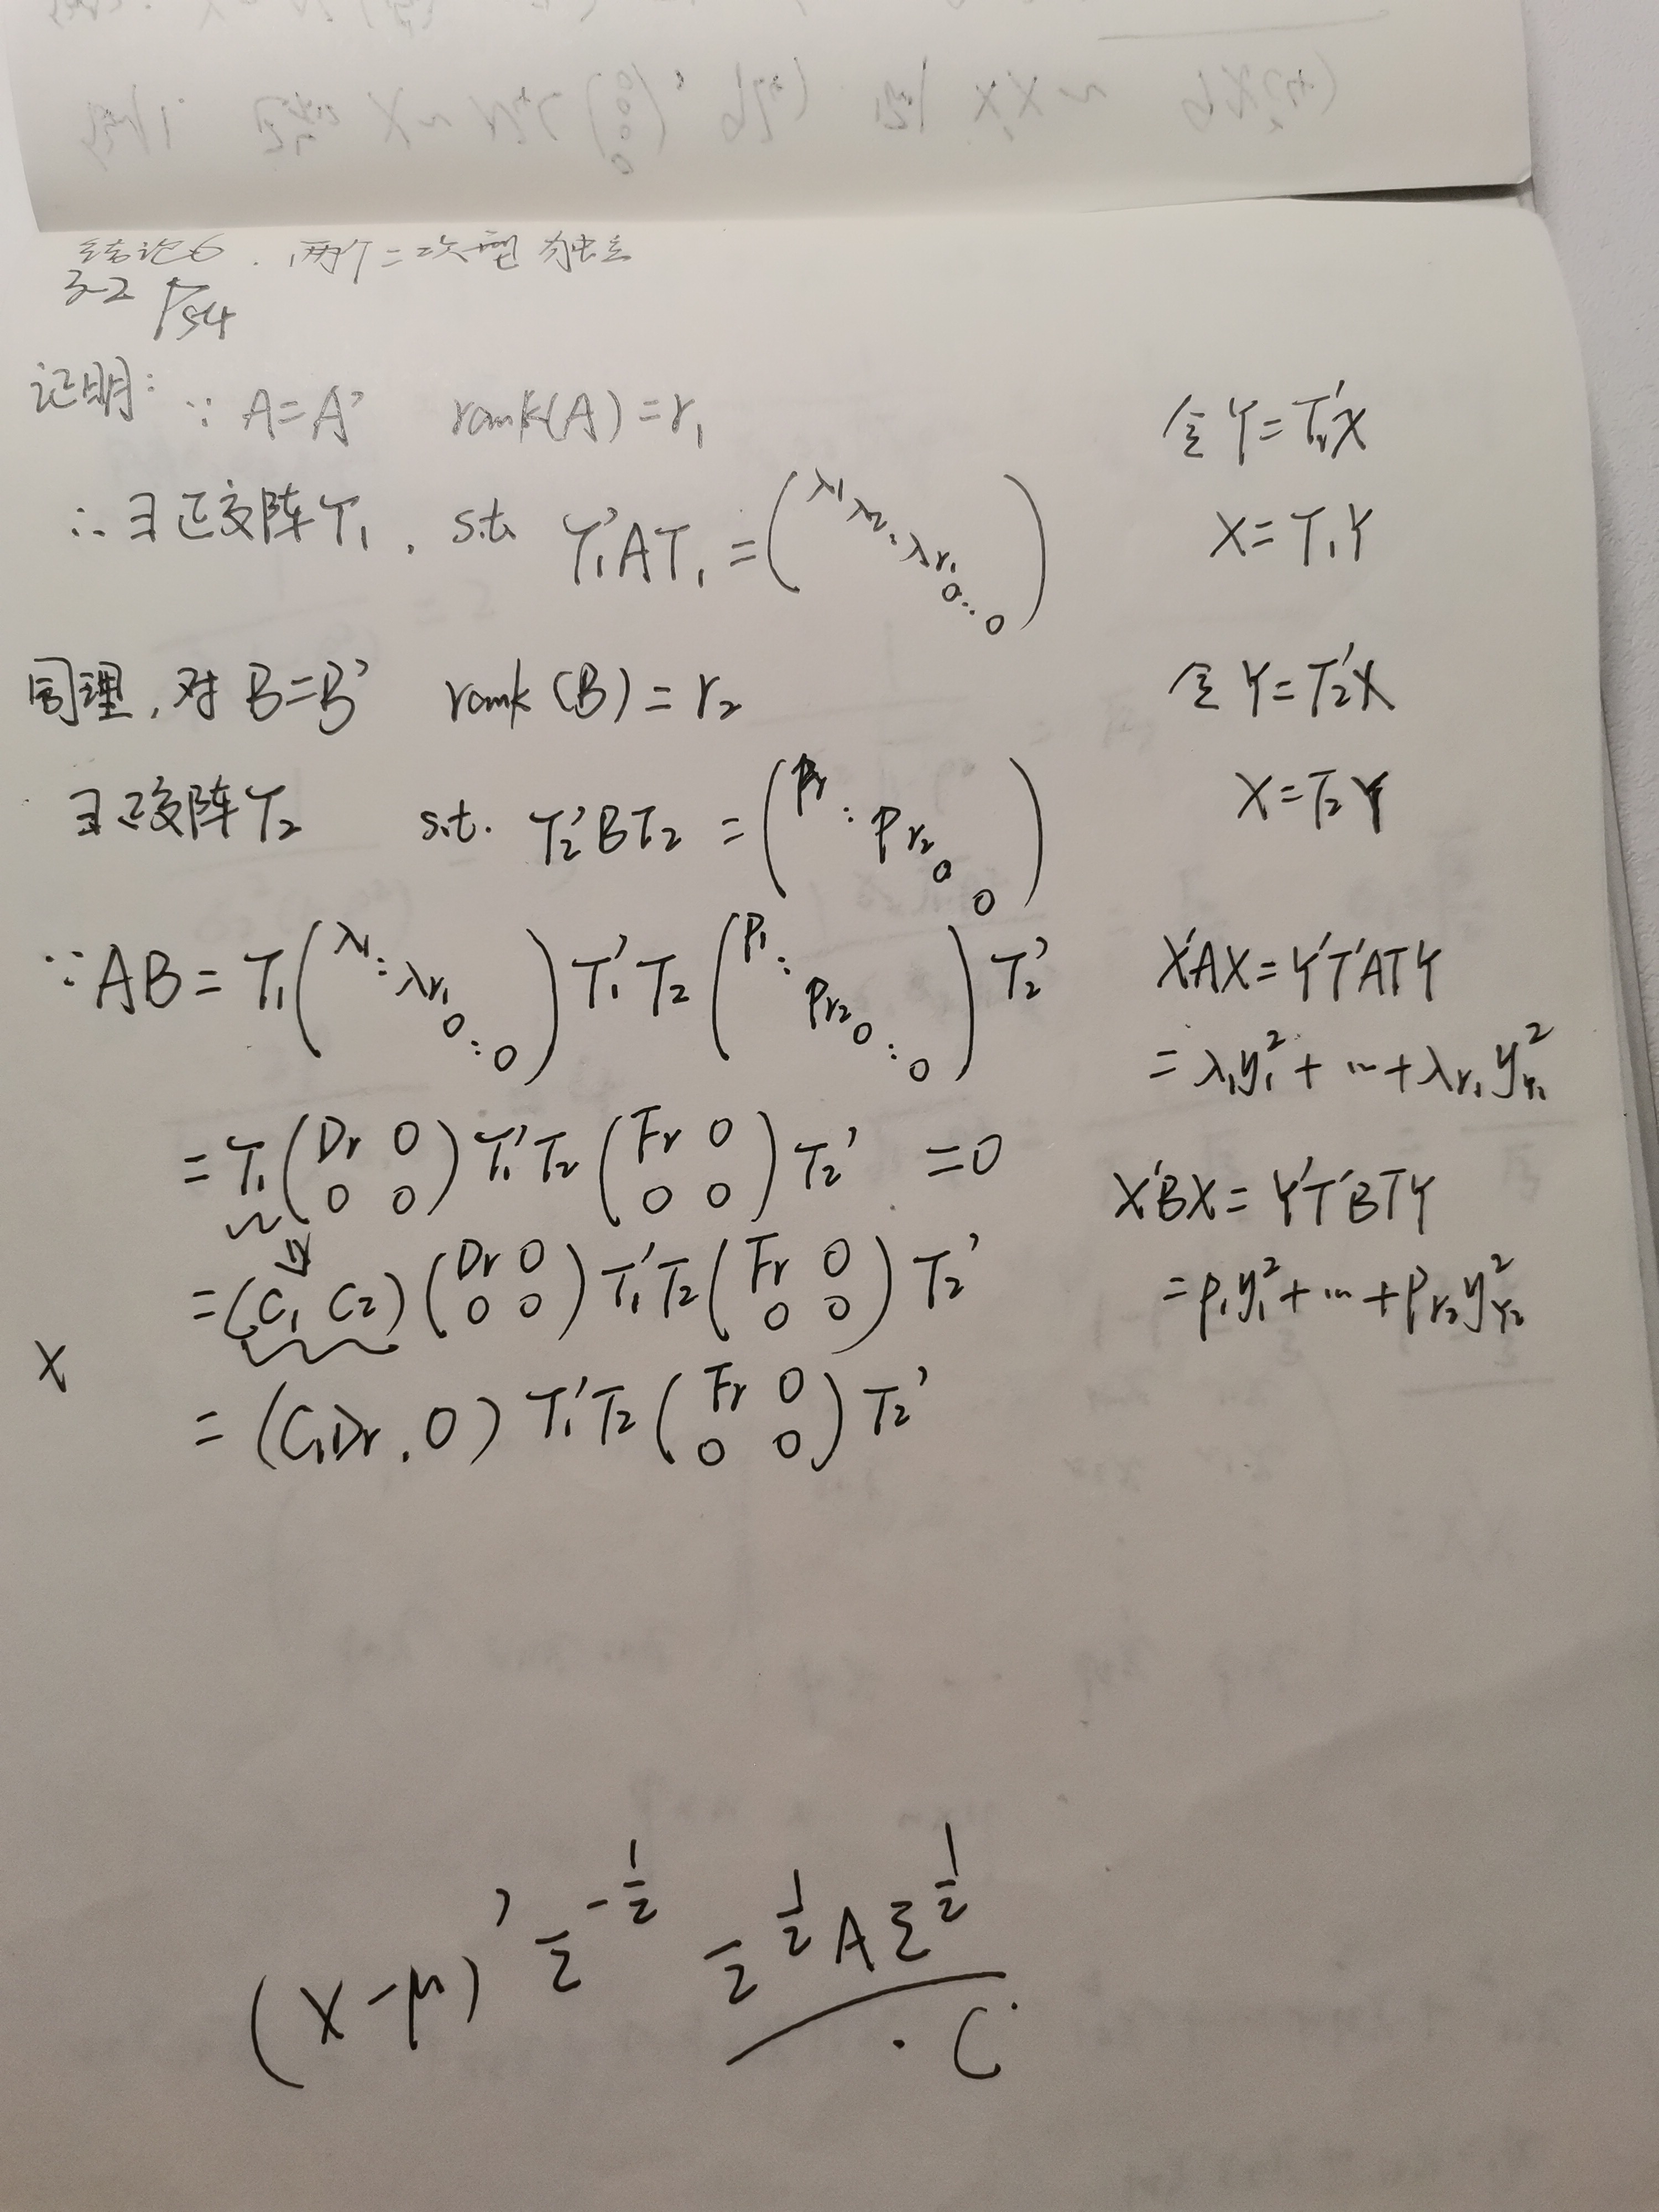 结论6. 两个二次型独立
3-2 P54
证明: ∵ A=A' rank(A)=r₁
令 Y=T₁'X
∴ ∃正交阵T₁, s.t. T₁'AT₁ = (λ₁ λ₂ ⋱ λr₁ 0 ⋱ 0)
X=T₁Y
同理, 对 B=B' rank(B)=r₂
令 Y=T₂'X
∃正交阵T₂ s.t. T₂'BT₂ = (P₁ ⋱ Pr₂ 0 0)
X=T₂Y
∵ AB = T₁(λ₁ ⋱ λr₁ 0 ⋱ 0)T₁'T₂(P₁ ⋱ Pr₂ 0 ⋱ 0)T₂'
X'AX = Y'T'ATY
= λ₁y₁² + … + λr₁ yr₁²
= T₁(Dr 0 0 0)T₁'T₂(Fr 0 0 0)T₂' = 0
X'BX = Y'T'BTY
= (C₁ C₂)(Dr 0 0 0)T₁'T₂(Fr 0 0 0)T₂'
= P₁y₁² + … + Pr₂ yr₂²
X
= (C₁Dr, 0) T₁'T₂(Fr 0 0 0)T₂'
(X-μ)' Σ^{-1/2} Σ^{1/2} A Σ^{1/2}
C